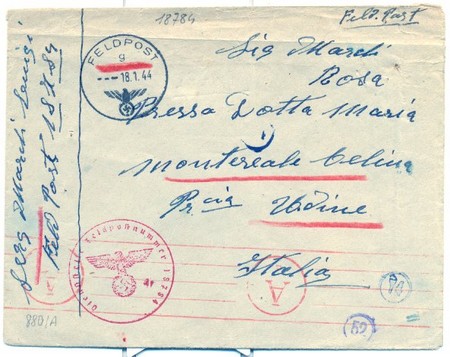 18784
Feld. Post
FELDPOST
g
--- 18.1.44
Sig March
Rosa
Pressa Dotta Maria
Montereale Celina
Pr cia Udine
Italia
Serg March Luigi
Feld Post 18784
Dienststelle Feldpostnummer 18784
A
A
59
880/A